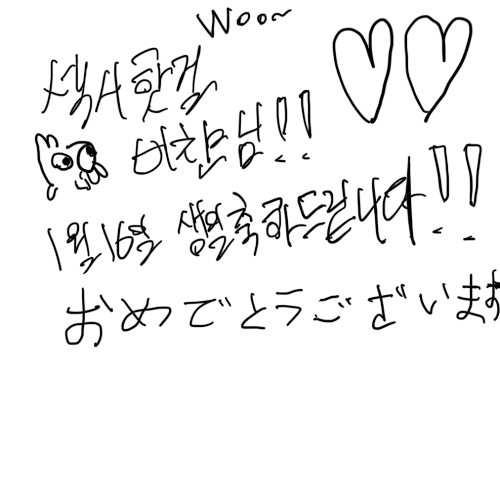 Woo~
섹시핫걸
버찬보님!!
1월16일 생일축하드립니다!!
おめでとうございます